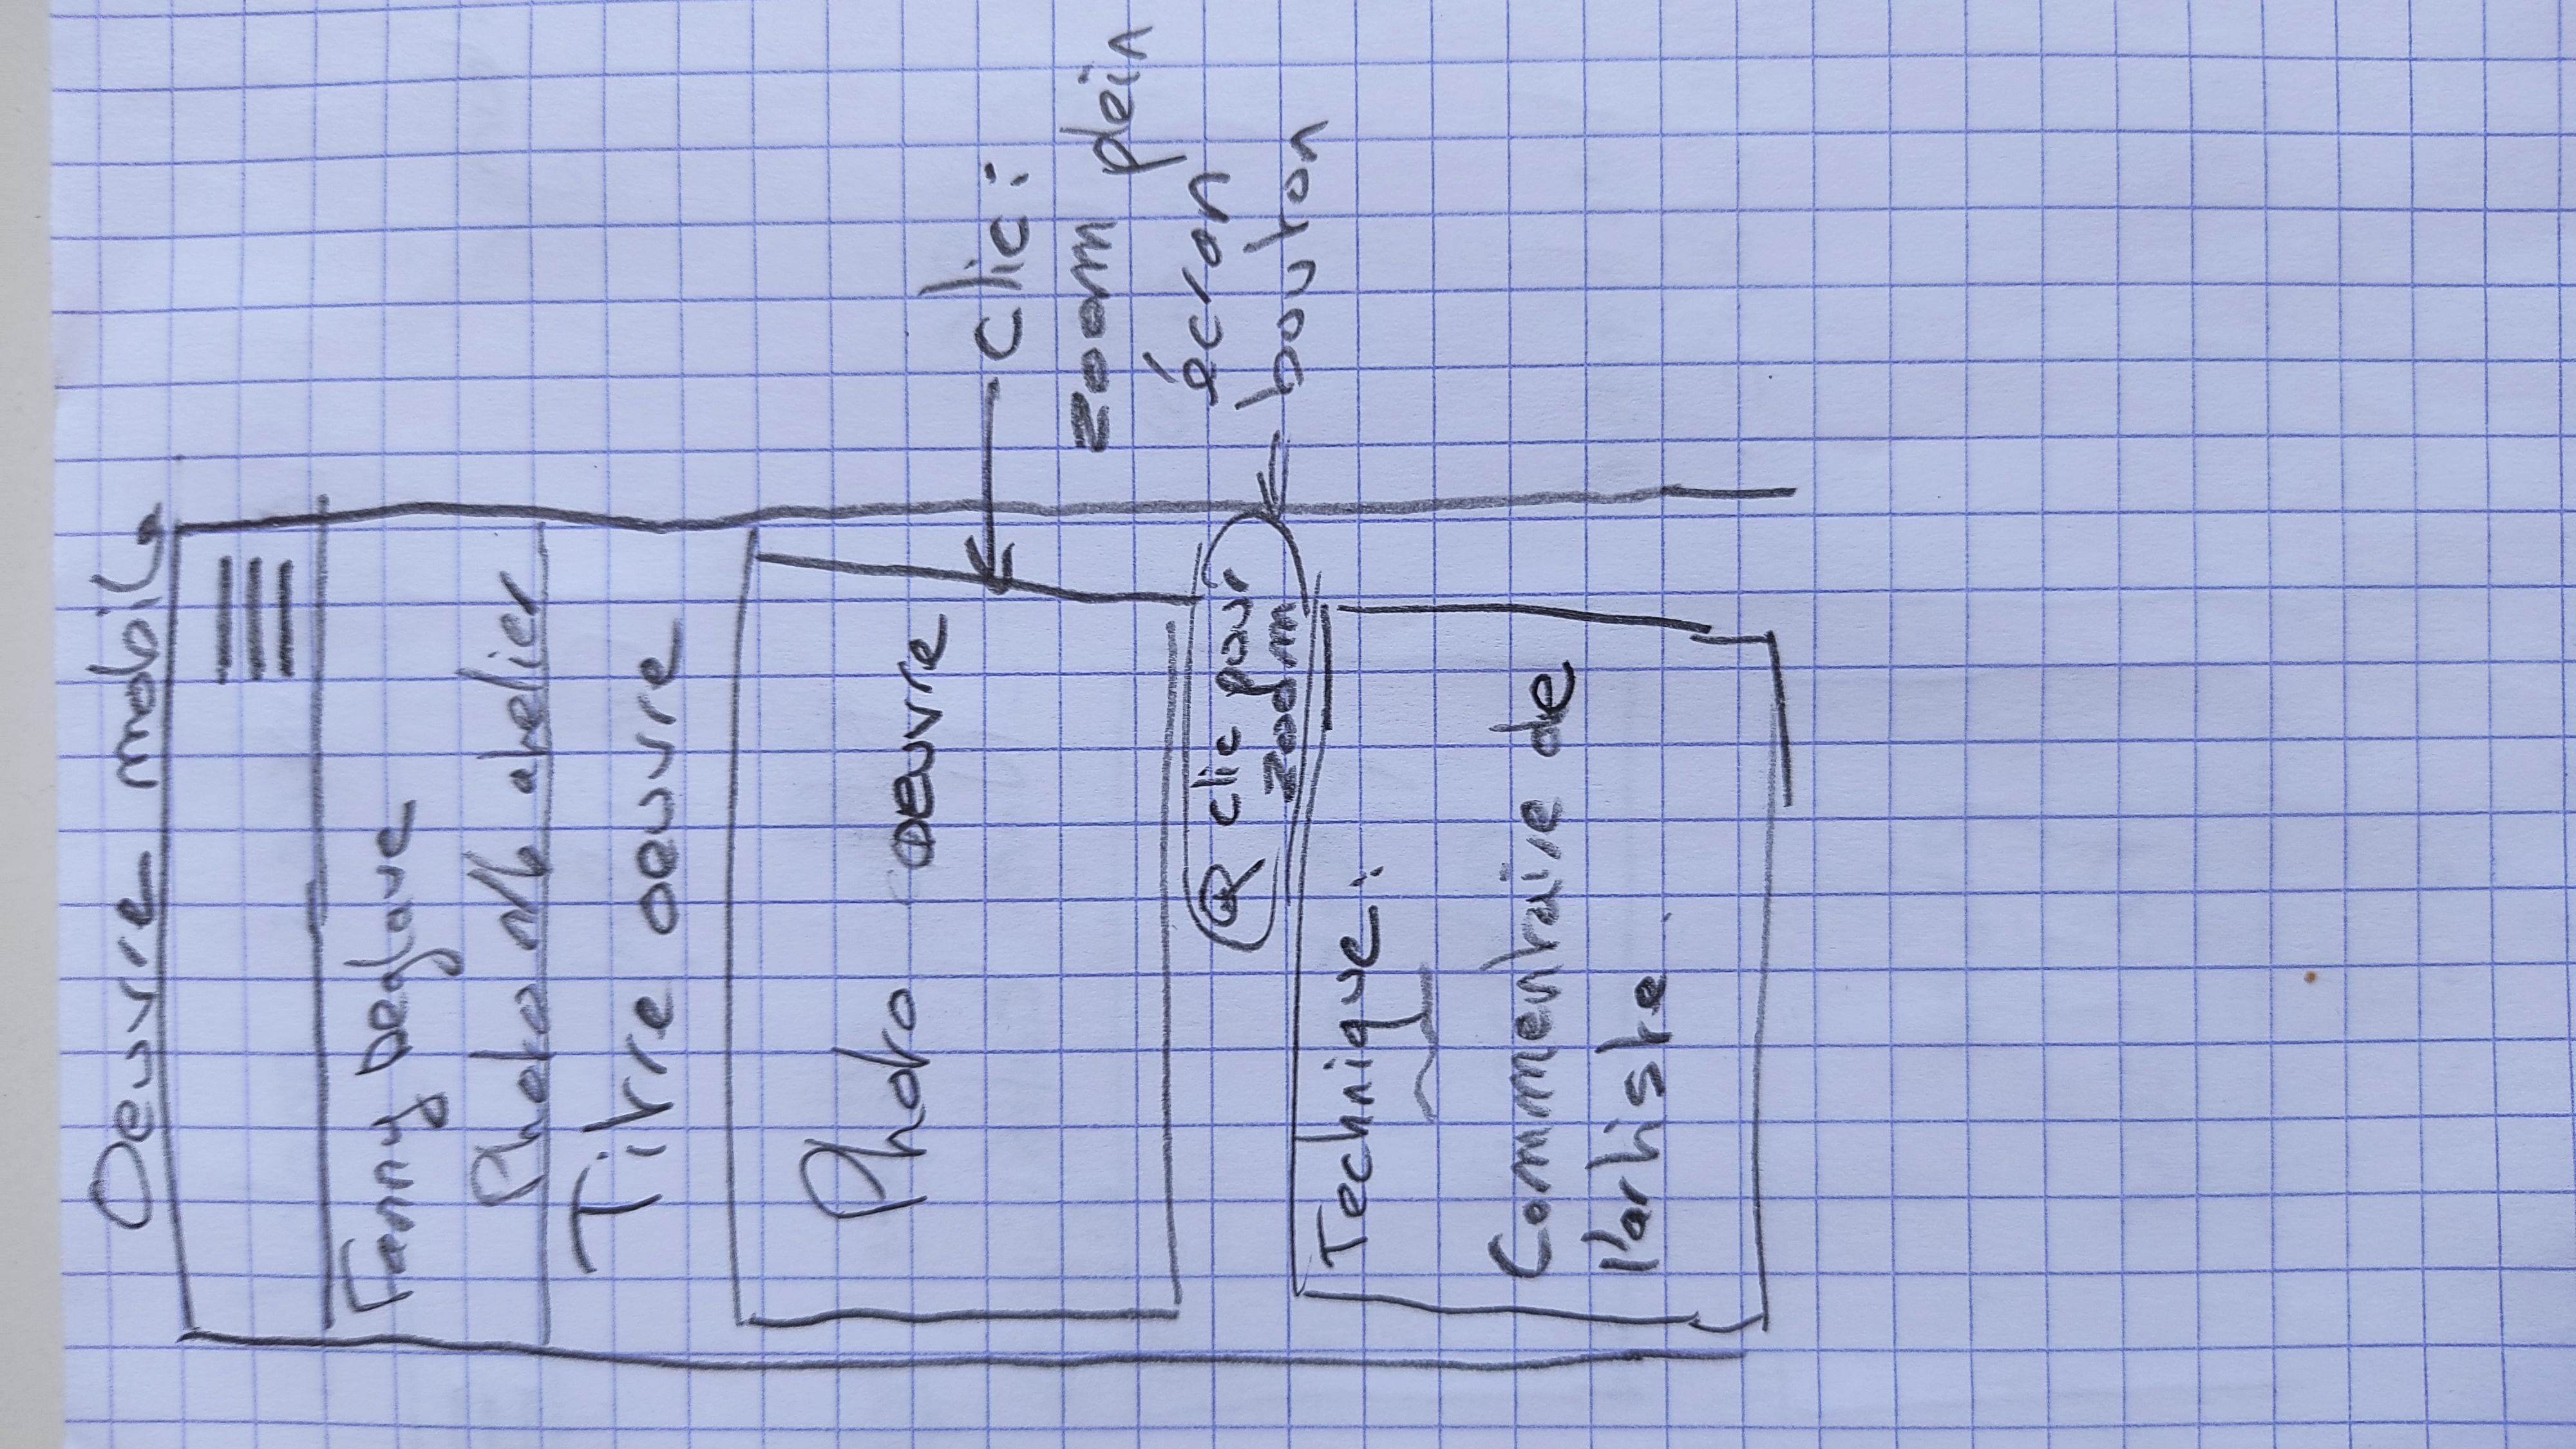 Oeuvre mobile
Fanny Deglave
Photo n/b atelier
Titre oeuvre
Photo oeuvre
Clic :
zoom plein
écran
clic pour
zoom
bouton
Technique :
Commentaire de
l'artiste